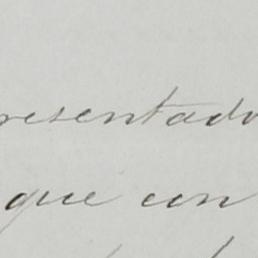 resentado
que con